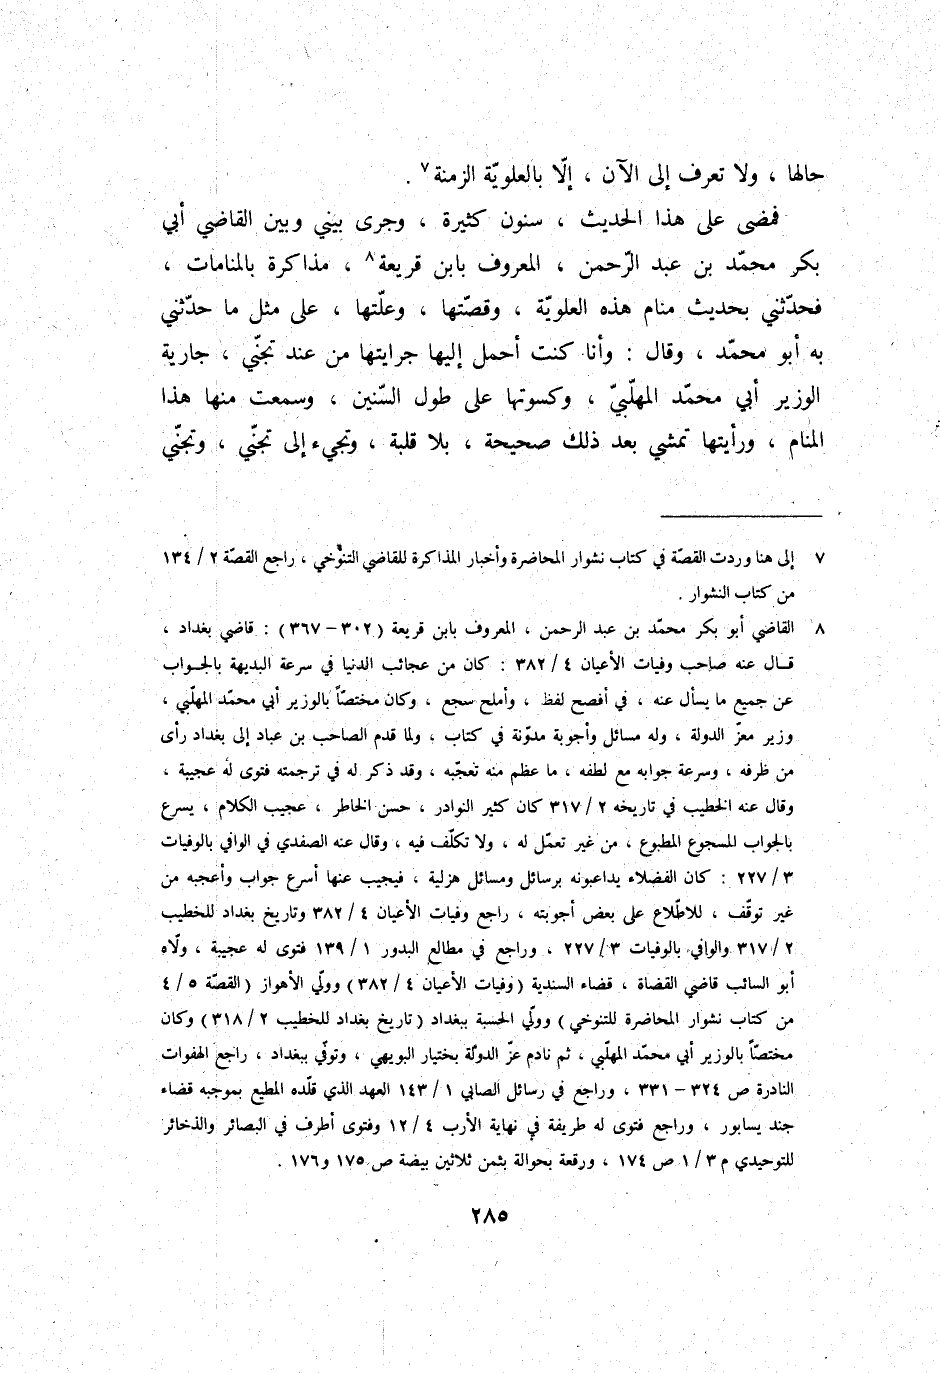 حالها ، ولا تعرف إلى الآن ، إلّا بالعلويّة الزمنة٧ .
فمضى على هذا الحديث ، سنون كثيرة ، وجرى بيني وبين القاضي أبي
بكر محمّد بن عبد الرّحمن ، المعروف بابن قريعة٨ ، مذاكرة بالمنامات ،
فحدّثني بحديث منام هذه العلويّة ، وقصّتها ، وعلّتها ، على مثل ما حدّثني
به أبو محمّد ، وقال : وأنا كنت أحمل إليها جرايتها من عند تجنّي ، جارية
الوزير أبي محمّد المهلّبيّ ، وكسوتها على طول السّنين ، وسمعت منها هذا
المنام ، ورأيتها تمشي بعد ذلك صحيحة ، بلا قلبة ، وتجيء إلى تجنّي ، وتجنّي
٧ إلى هنا وردت القصّة في كتاب نشوار المحاضرة وأخبار المذاكرة للقاضي التنوّخي ، راجع القصّة ٢ / ١٣٤
من كتاب النشوار .
٨ القاضي أبو بكر محمّد بن عبد الرحمن ، المعروف بابن قريعة (٣٠٢ – ٣٦٧) : قاضي بغداد ،
قال عنه صاحب وفيات الأعيان ٤ / ٣٨٢ : كان من عجائب الدنيا في سرعة البديهة بالجواب
عن جميع ما يسأل عنه ، في أفصح لفظ ، وأملح سجع ، وكان مختصّاً بالوزير أبي محمّد المهلّبي ،
وزير معزّ الدولة ، وله مسائل وأجوبة مدوّنة في كتاب ، ولما قدم الصاحب بن عباد إلى بغداد رأى
من ظرفه ، وسرعة جوابه مع لطفه ، ما عظم منه تعجّبه ، وقد ذكر له في ترجمته فتوى له عجيبة ،
وقال عنه الخطيب في تاريخه ٢ / ٣١٧ كان كثير النوادر ، حسن الخاطر ، عجيب الكلام ، يسرع
بالجواب المسجوع المطبوع ، من غير تعمّل له ، ولا تكلّف فيه ، وقال عنه الصفدي في الوافي بالوفيات
٣ / ٢٢٧ : كان الفضلاء يداعبونه برسائل ومسائل هزلية ، فيجيب عنها أسرع جواب وأعجبه من
غير توقّف ، للاطّلاع على بعض أجوبته ، راجع وفيات الأعيان ٤ / ٣٨٢ وتاريخ بغداد للخطيب
٢ / ٣١٧ والوافي بالوفيات ٣ / ٢٢٧ ، وراجع في مطالع البدور ١ / ١٣٩ فتوى له عجيبة ، ولّاه
أبو السائب قاضي القضاة ، قضاء السندية (وفيات الأعيان ٤ / ٣٨٢) وولّي الأهواز (القصّة ٥ / ٤
من كتاب نشوار المحاضرة للتنوخي) وولّي الحسبة ببغداد (تاريخ بغداد للخطيب ٢ / ٣١٨) وكان
مختصّاً بالوزير أبي محمّد المهلّبي ، ثم نادم عزّ الدولة بختيار البويهي ، وتوفّي ببغداد ، راجع الهفوات
النادرة ص ٣٢٤ – ٣٣١ ، وراجع في رسائل الصابي ١ / ١٤٣ العهد الذي قلّده المطيع بموجبه قضاء
جند يسابور ، وراجع فتوى له طريفة في نهاية الأرب ٤ / ١٢ وفتوى أطرف في البصائر والذخائر
للتوحيدي م ٣ / ١ ص ١٧٤ ، ورقعة بحوالة بثمن ثلاثين بيضة ص ١٧٥ و ١٧٦ .
٢٨٥